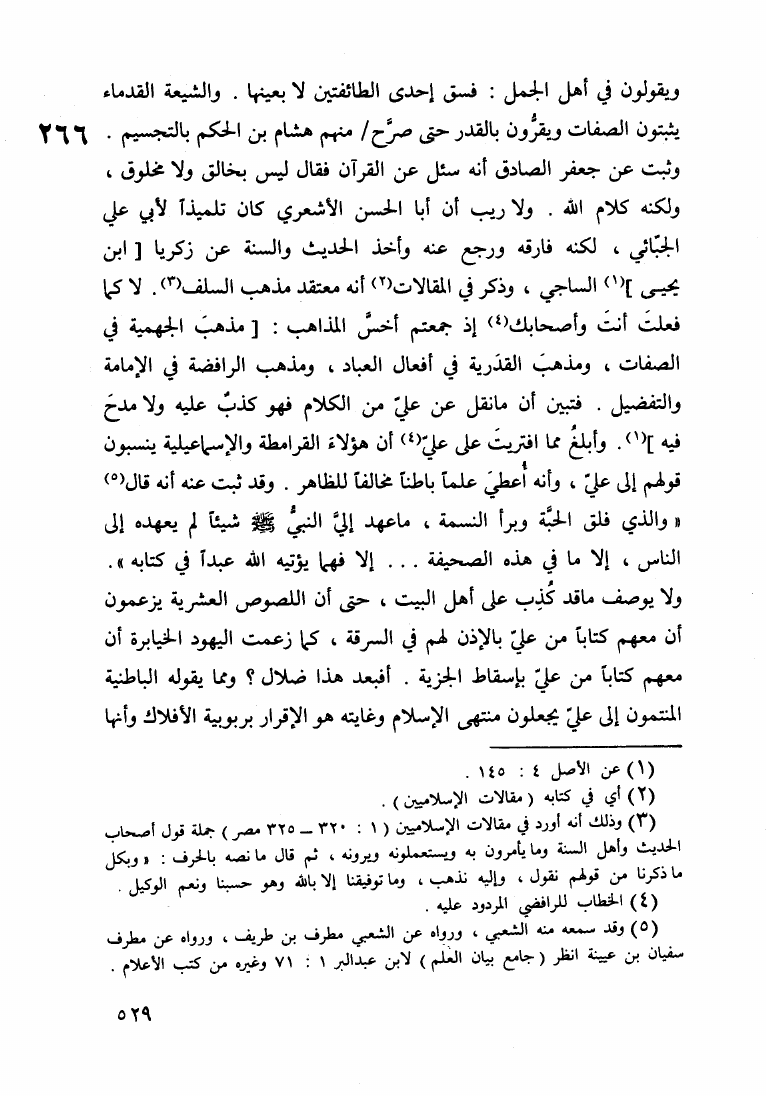 ويقولون في أهل الجمل : فسق إحدى الطائفتين لا بعينها . والشيعة القدماء
يثبتون الصفات ويقرُّون بالقدر حتى صرَّح/ منهم هشام بن الحكم بالتجسيم . ٢٦٦
وثبت عن جعفر الصادق أنه سئل عن القرآن فقال ليس بخالق ولا مخلوق ،
ولكنه كلام الله . ولا ريب أن أبا الحسن الأشعري كان تلميذاً لأبي علي
الجبّائي ، لكنه فارقه ورجع عنه وأخذ الحديث والسنة عن زكريا [ ابن
يحيى ](١) الساجي ، وذكر في المقالات(٢) أنه معتقد مذهب السلف(٣). لا كما
فعلتَ أنتَ وأصحابك(٤) إذ جمعتم أخسَّ المذاهب : [ مذهبَ الجهمية في
الصفات ، ومذهبَ القدَرية في أفعال العباد ، ومذهب الرافضة في الإمامة
والتفضيل . فتبين أن مانقل عن عليّ من الكلام فهو كذبٌ عليه ولا مدحَ
فيه ](١). وأبلغُ مما افتريتَ على عليّ(٤) أن هؤلاءَ القرامطة والإسماعيلية ينسبون
قولهم إلى عليّ ، وأنه أُعطيَ علماً باطناً مخالفاً للظاهر . وقد ثبت عنه أنه قال(٥)
« والذي فلق الحبَّة وبرأ النسمة ، ماعهد إليَّ النبيُّ ﷺ شيئاً لم يعهده إلى
الناس ، إلا ما في هذه الصحيفة ... إلا فهما يؤتيه الله عبداً في كتابه ».
ولا يوصف ماقد كُذِب على أهل البيت ، حتى أن اللصوص العشرية يزعمون
أن معهم كتاباً من عليّ بالإذن لهم في السرقة ، كما زعمت اليهود الخيابرة أن
معهم كتاباً من عليّ بإسقاط الجزية . أفبعد هذا ضلال ؟ ومما يقوله الباطنية
المنتمون إلى عليّ يجعلون منتهى الإسلام وغايته هو الإقرار بربوبية الأفلاك وأنها
(١) عن الأصل ٤ : ١٤٥ .
(٢) أي في كتابه ( مقالات الإسلاميين ) .
(٣) وذلك أنه أورد في مقالات الإسلاميين ( ١ : ٣٢٠ – ٣٢٥ مصر ) جملة قول أصحاب
الحديث وأهل السنة وما يأمرون به ويستعملونه ويرونه ، ثم قال مانصه بالحرف : « وبكل
ما ذكرنا من قولهم نقول ، وإليه نذهب ، وما توفيقنا إلا بالله وهو حسبنا ونعم الوكيل .
(٤) الخطاب للرافضي المردود عليه .
(٥) وقد سمعه منه الشعبي ، ورواه عن الشعبي مطرف بن طريف ، ورواه عن مطرف
سفيان بن عيينة انظر ( جامع بيان العلم ) لابن عبدالبر ١ : ٧١ وغيره من كتب الأعلام .
٥٢٩